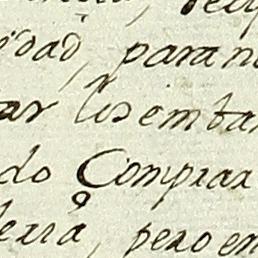 edad, para n
ar los emba
do Comprar
erra, pero en